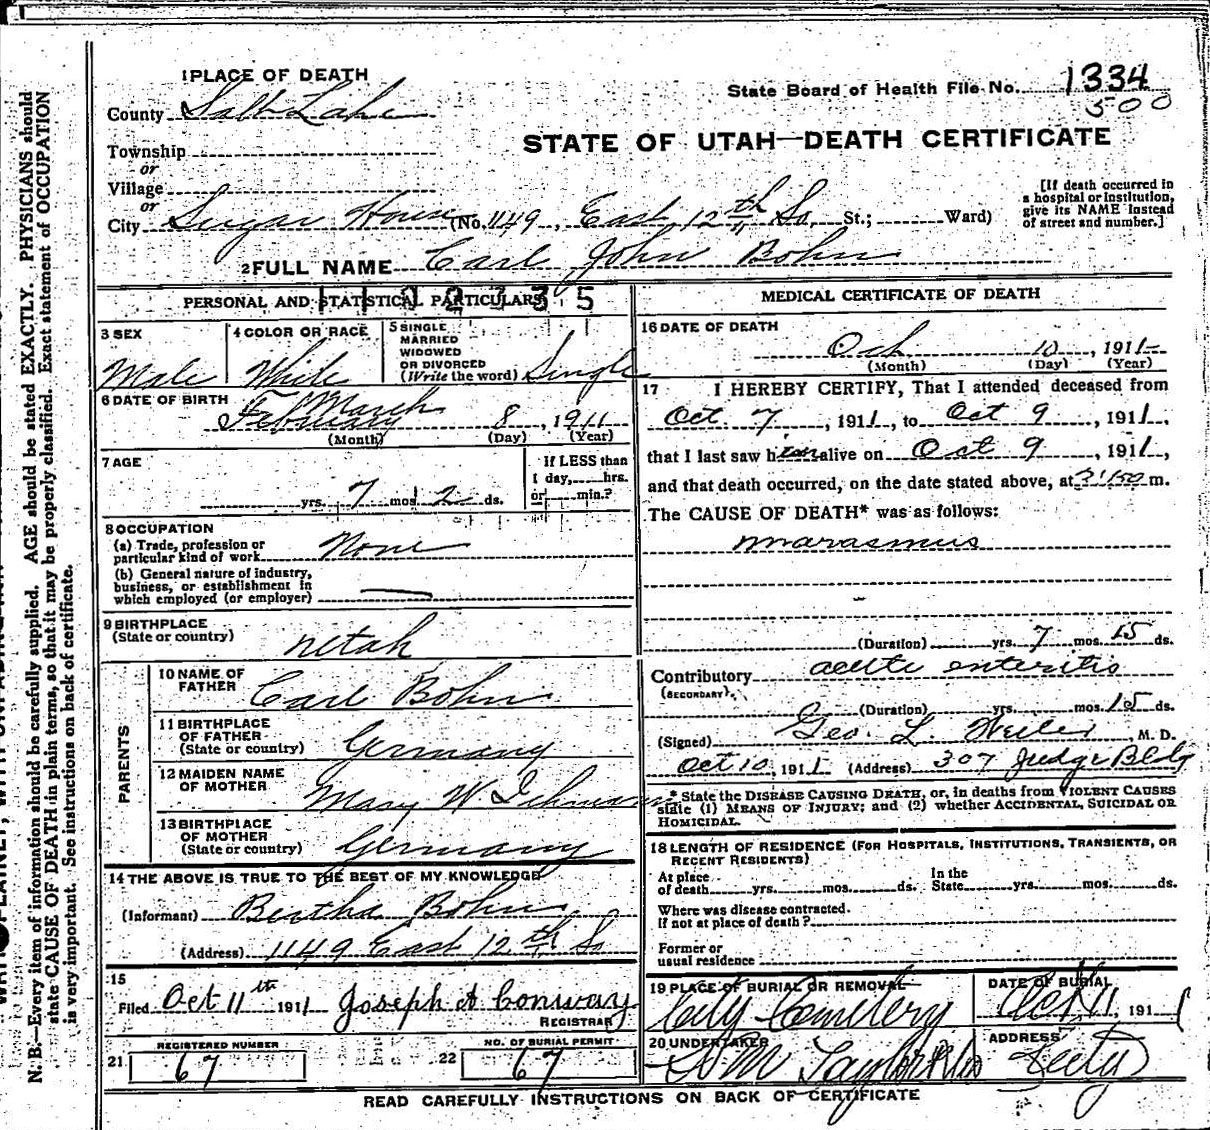 1 PLACE OF DEATH
State Board of Health File No. 1334
500
County Salt Lake
STATE OF UTAH—DEATH CERTIFICATE
Township
or
Village
or
City Sugar House (No. 1149, East 12th So St.; Ward)
[If death occurred in
a hospital or institution,
give its NAME instead
of street and number.]
2 FULL NAME Carl John Bohn
PERSONAL AND STATISTICAL PARTICULARS
3 SEX
Male
4 COLOR OR RACE
White
5 SINGLE
MARRIED
WIDOWED
OR DIVORCED
(Write the word) Single
6 DATE OF BIRTH
March
February 8, 1911
(Month) (Day) (Year)
7 AGE
yrs. 7 mos. 2 ds.
If LESS than
1 day, hrs.
or min.?
8 OCCUPATION
(a) Trade, profession or
particular kind of work None
(b) General nature of industry,
business, or establishment in
which employed (or employer)
9 BIRTHPLACE
(State or country) Utah
PARENTS
10 NAME OF
FATHER Carl Bohn
11 BIRTHPLACE
OF FATHER
(State or country) Germany
12 MAIDEN NAME
OF MOTHER Mary W
13 BIRTHPLACE
OF MOTHER
(State or country) Germany
14 THE ABOVE IS TRUE TO THE BEST OF MY KNOWLEDGE
(Informant) Bertha Bohn
(Address) 1149 East 12th So
15
Filed Oct 11th 1911 Joseph A Conway
REGISTRAR
21 REGISTERED NUMBER
67
22 NO. OF BURIAL PERMIT
67
MEDICAL CERTIFICATE OF DEATH
16 DATE OF DEATH
Oct 10, 1911
(Month) (Day) (Year)
17 I HEREBY CERTIFY, That I attended deceased from
Oct. 7, 1911, to Oct 9, 1911,
that I last saw him alive on Oct 9, 1911,
and that death occurred, on the date stated above, at m.
The CAUSE OF DEATH* was as follows:
marasmus
(Duration) yrs. 7 mos. 15 ds.
Contributory acute enteritis
(SECONDARY).
(Duration) yrs. mos. 15 ds.
(Signed) Geo. L. M. D.
Oct 10, 1911 (Address) 307 Judge Bldg
* State the DISEASE CAUSING DEATH, or, in deaths from VIOLENT CAUSES
state (1) MEANS OF INJURY; and (2) whether ACCIDENTAL, SUICIDAL OR
HOMICIDAL.
18 LENGTH OF RESIDENCE (FOR HOSPITALS, INSTITUTIONS, TRANSIENTS, OR
RECENT RESIDENTS)
At place
of death yrs. mos. ds. In the
State yrs. mos. ds.
Where was disease contracted.
if not at place of death?
Former or
usual residence
19 PLACE OF BURIAL OR REMOVAL
City Cemetery
DATE OF BURIAL
Oct 11, 1911
20 UNDERTAKER
Taylor
ADDRESS
City
READ CAREFULLY INSTRUCTIONS ON BACK OF CERTIFICATE
N. B.—Every item of information should be carefully supplied. AGE should be stated EXACTLY. PHYSICIANS should
state CAUSE OF DEATH in plain terms, so that it may be properly classified. Exact statement of OCCUPATION
is very important. See instructions on back of certificate.